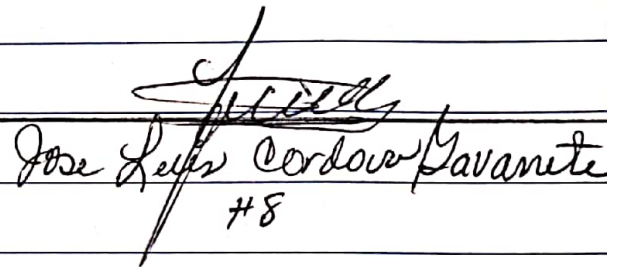 Jose Luis Cordova Gavanete
#8